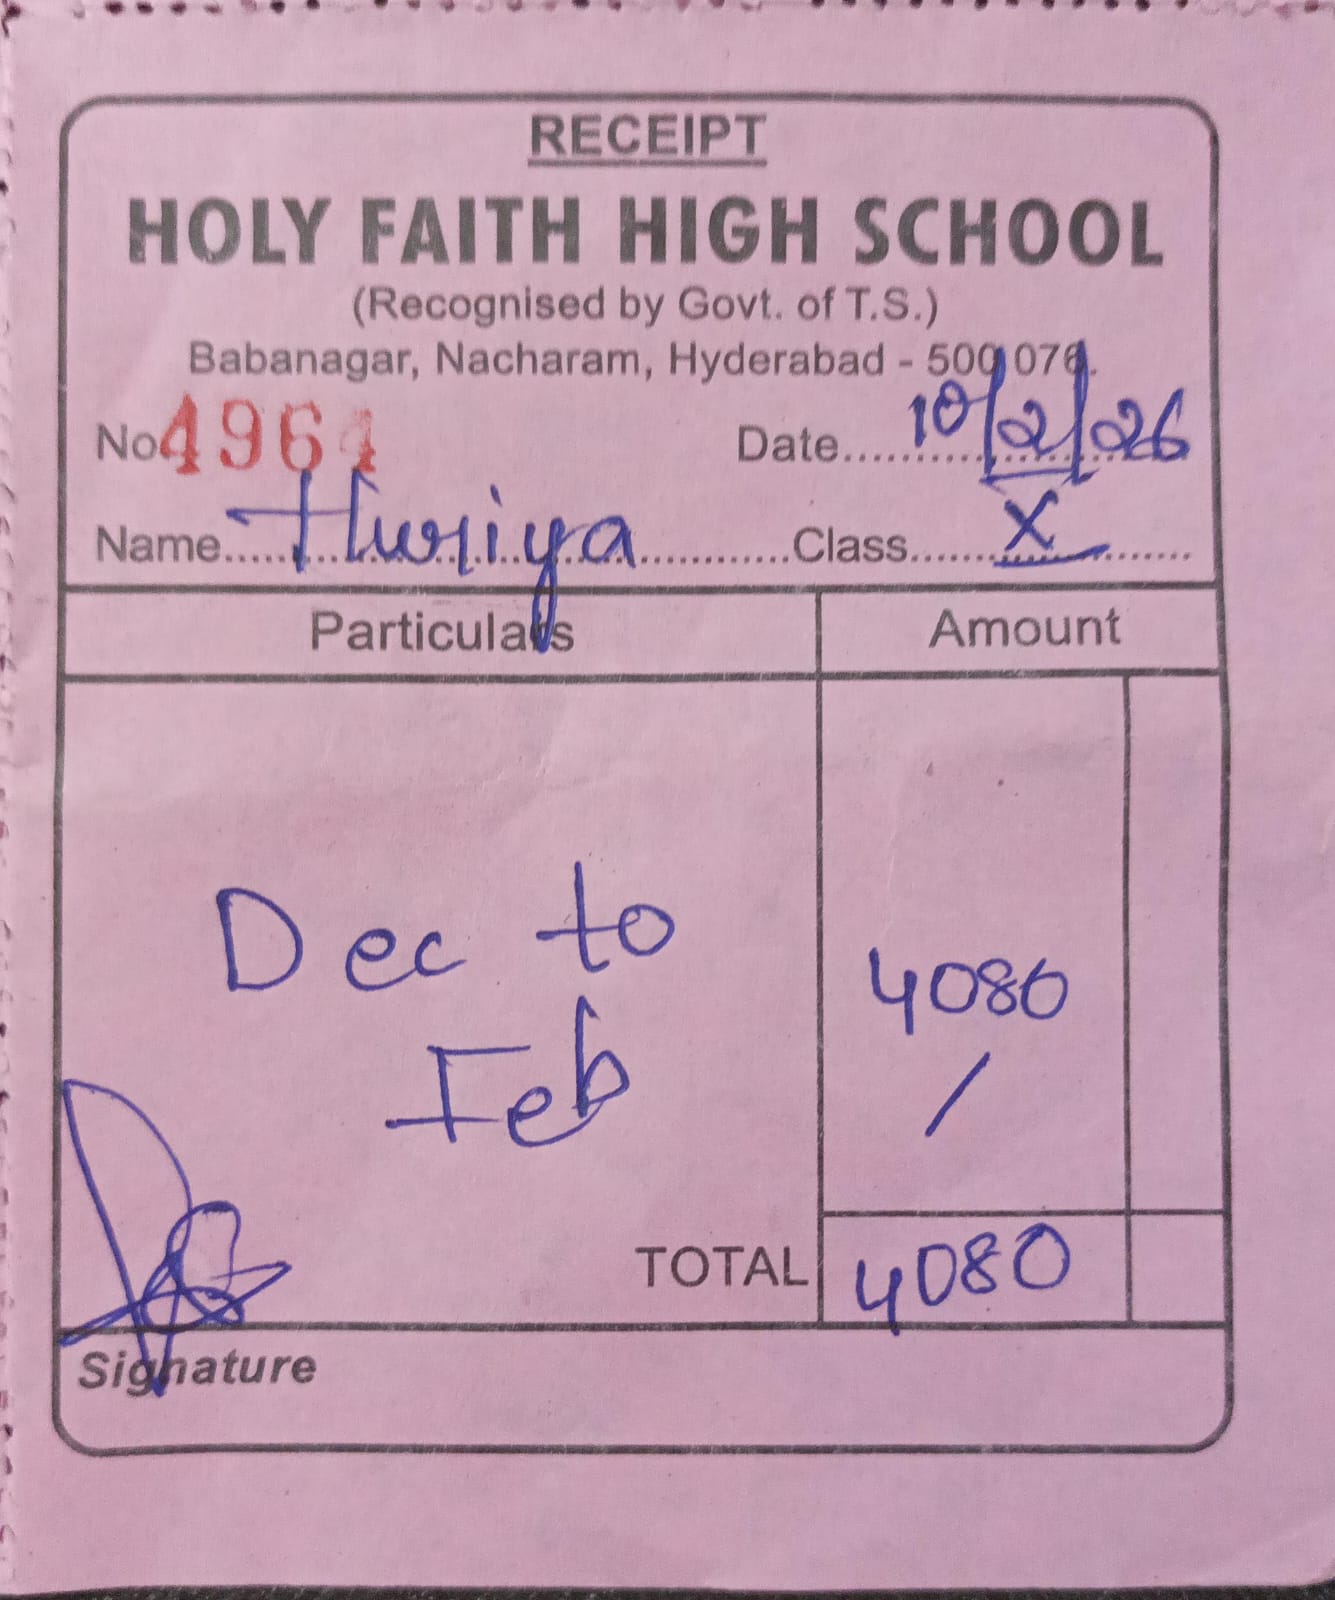 RECEIPT
HOLY FAITH HIGH SCHOOL
(Recognised by Govt. of T.S.)
Babanagar, Nacharam, Hyderabad - 500 076.
No 4964 Date 10/2/26
Name Huriya Class X
Particulars Amount
Dec to
Feb
4080
/
TOTAL 4080
Signature